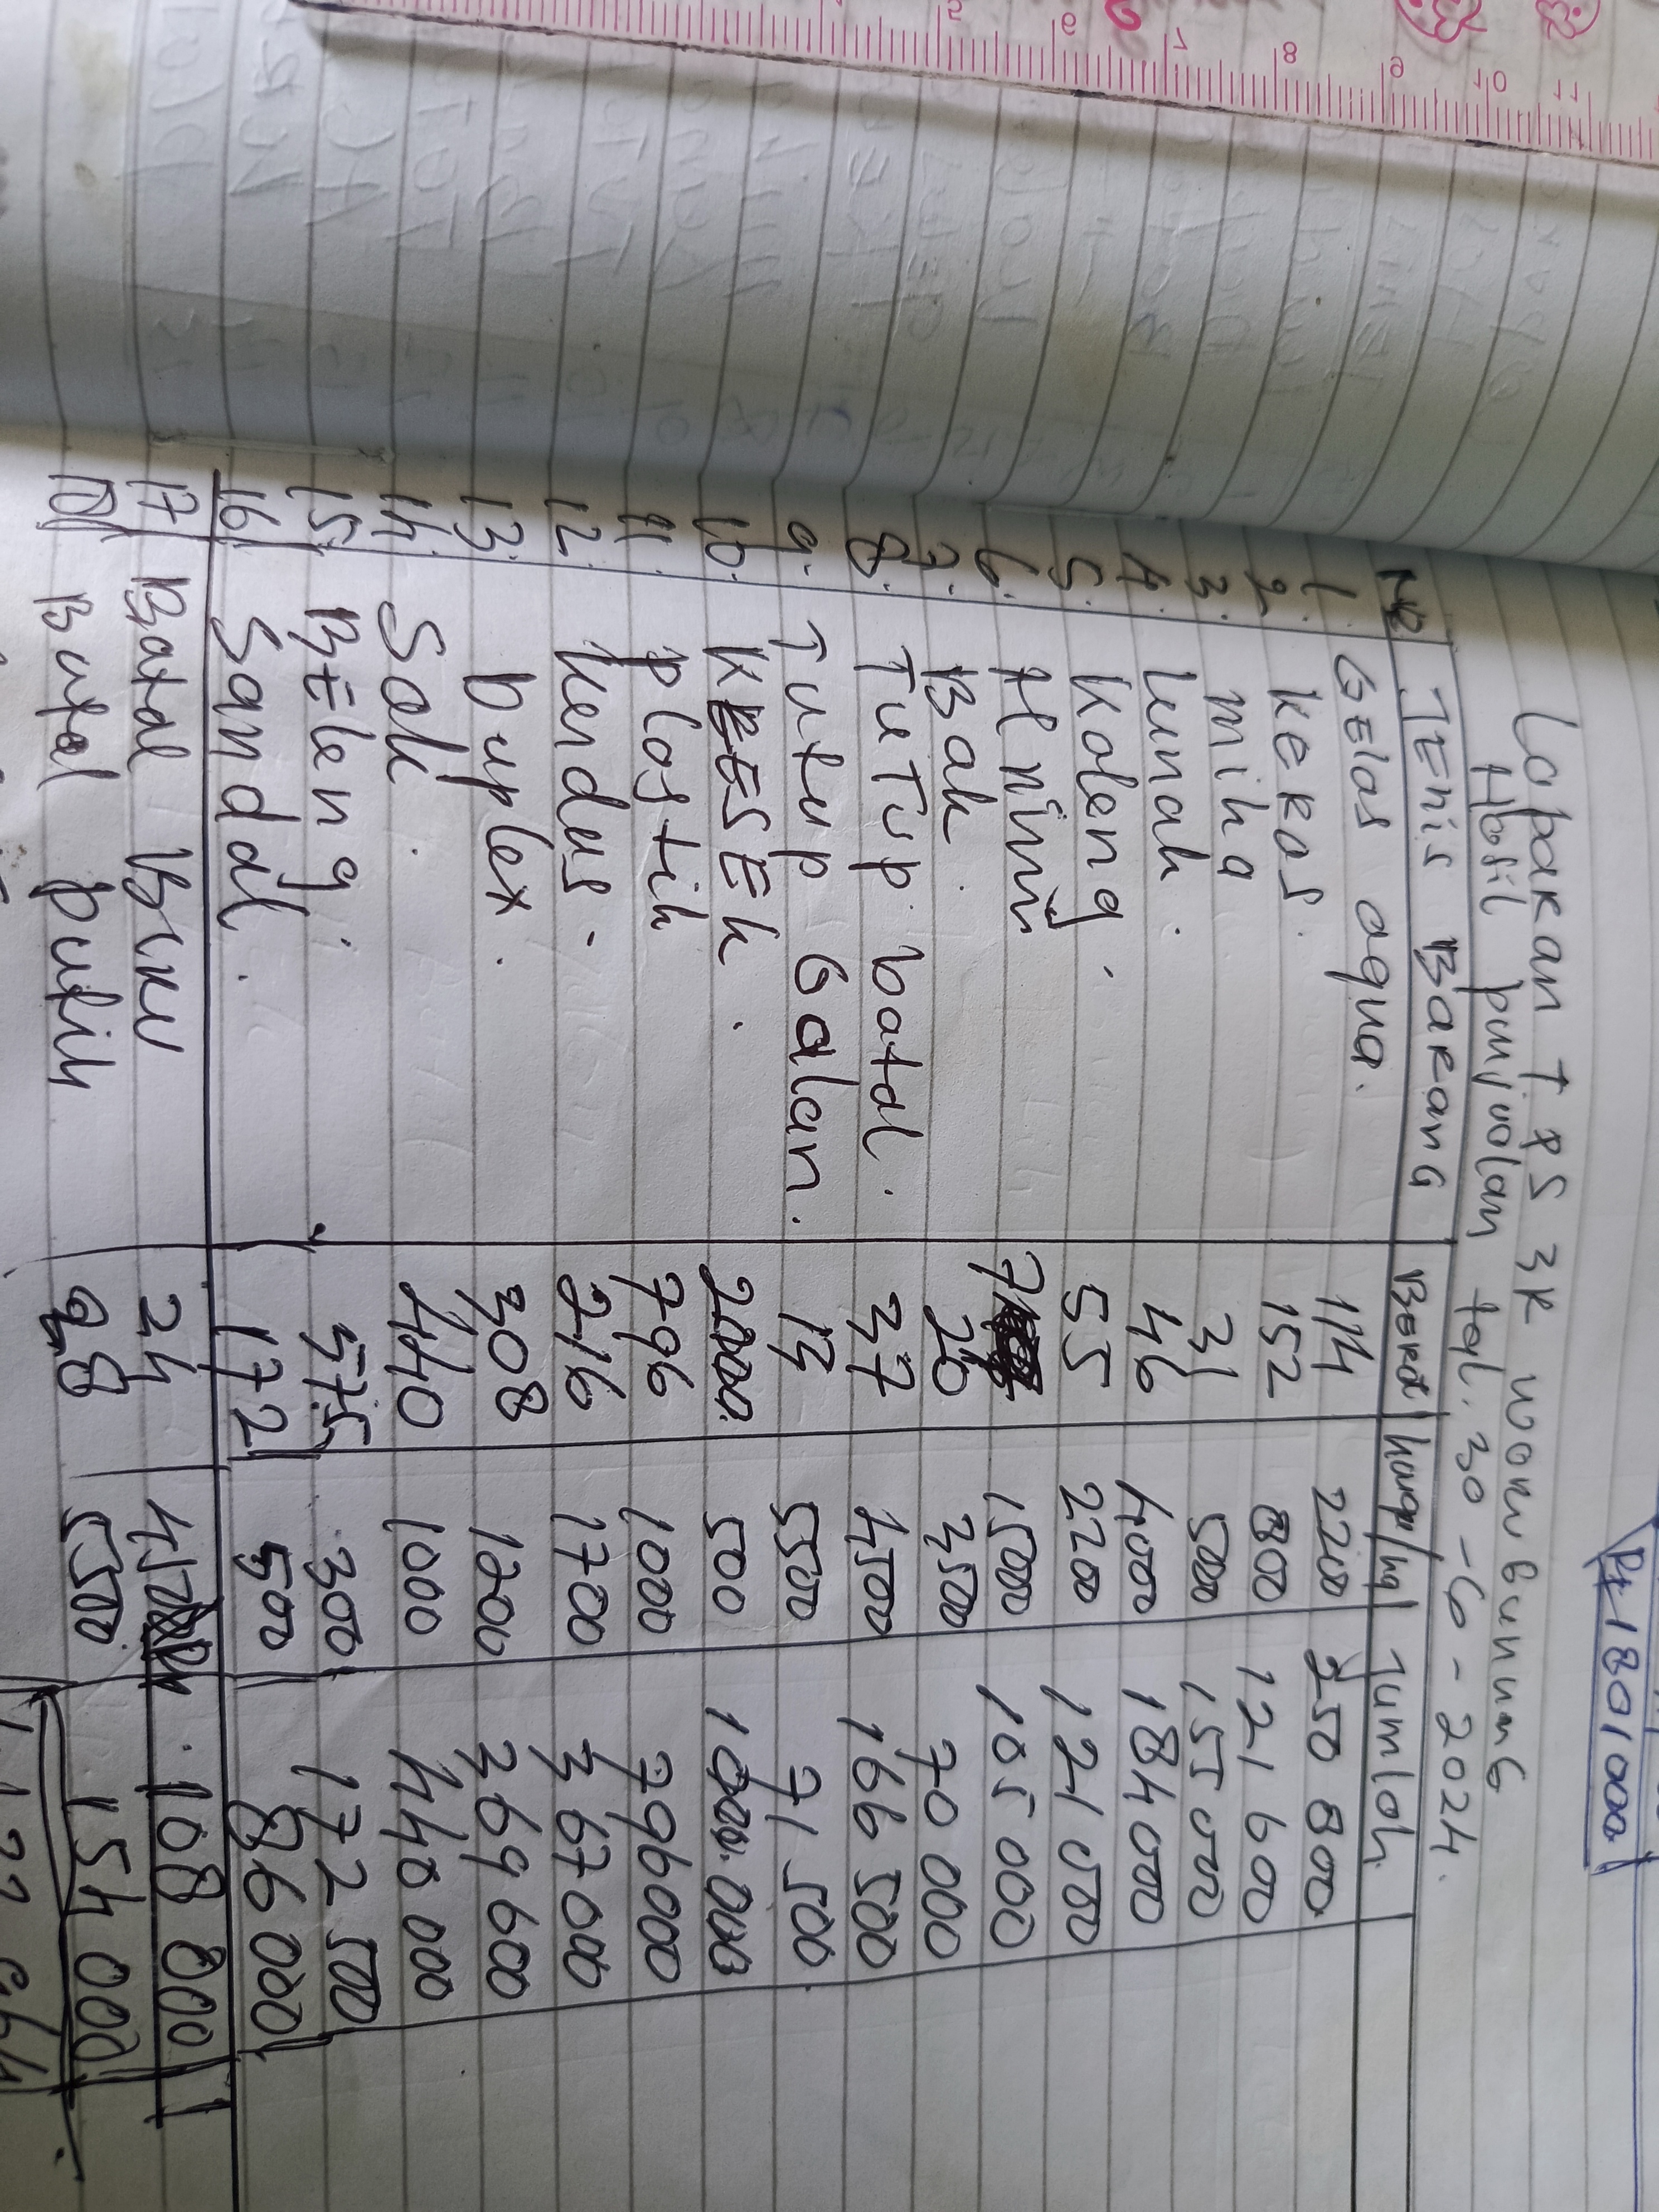 Rp 1801000
Laporan TPS 3R wonu bunung
Hasil penjualan tgl. 30-6-2024.
No JEnis BaRanG Berat Harga/kg Jumlah
1. GElas aqua. 114 2200 250 800
2. kERas. 152 800 121 600
3. mika 31 5000 155 000
4. Lunak. 46 4000 184 000
5. Kaleng. 55 2200 121 000
6. Alnimi 7 15000 105 000
7. Bak. 20 3500 70 000
8. TuTup batal. 37 4500 166 500
9. Tutup Galan. 13 5500 71 500
10. KRESEk. 2000 500 1000.000
11. plastik 796 1000 796000
12. Kerdus. 216 1700 367 000
13. Duplex. 308 1200 369 600
14. Sak. 440 1000 440 000
15 BEleng. 575 300 172 500
16 Sandal. 172 500 86 000
17 Batal Biru 24 108 000
18 Butal putih 28 5500 154 000